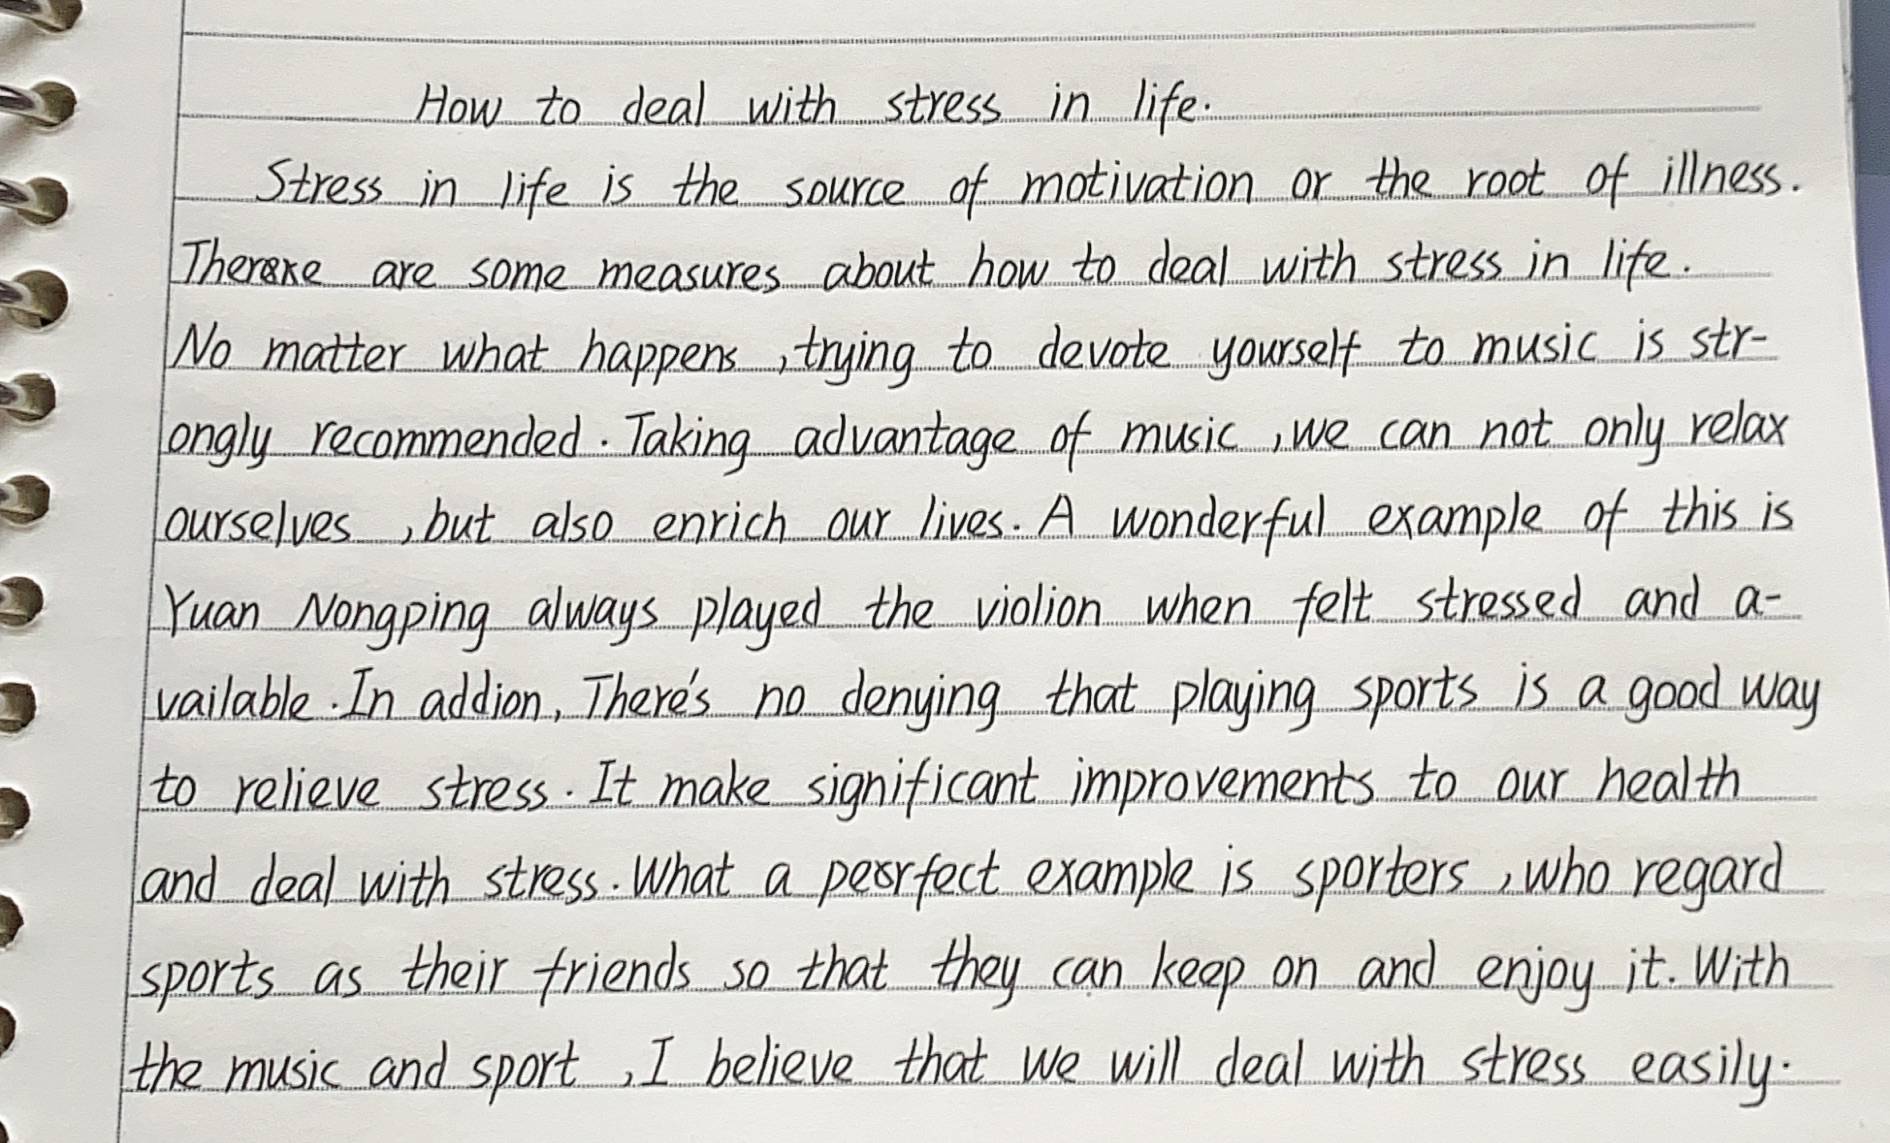 How to deal with stress in life.
Stress in life is the source of motivation or the root of illness.
There are some measures about how to deal with stress in life.
No matter what happens, trying to devote yourself to music is str-
ongly recommended. Taking advantage of music, we can not only relax
ourselves, but also enrich our lives. A wonderful example of this is
Yuan Nongping always played the violion when felt stressed and a-
vailable. In addion, There's no denying that playing sports is a good way
to relieve stress. It make significant improvements to our health
and deal with stress. What a perfect example is sporters, who regard
sports as their friends so that they can keep on and enjoy it. With
the music and sport, I believe that we will deal with stress easily.